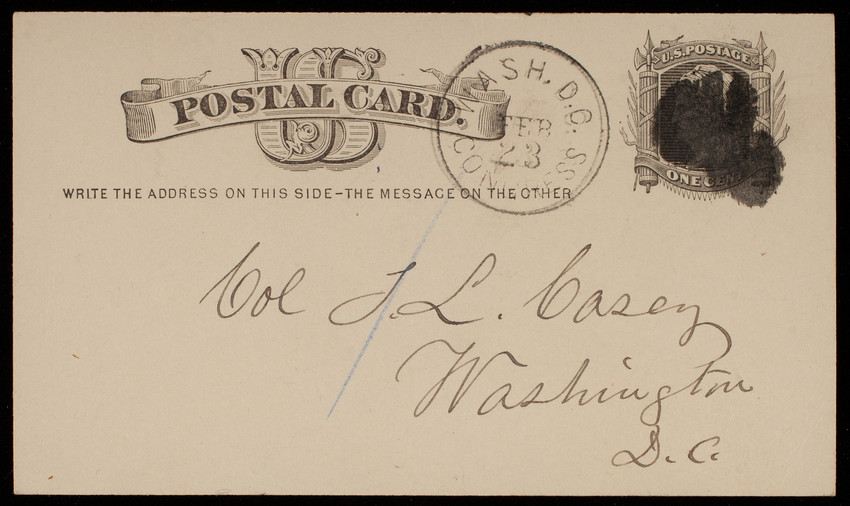 US
POSTAL CARD.
WASH. D.C.
FEB
23
CONGRESS
U.S. POSTAGE
ONE CENT
WRITE THE ADDRESS ON THIS SIDE-THE MESSAGE ON THE OTHER
Col T. L. Casey
Washington
D.C.